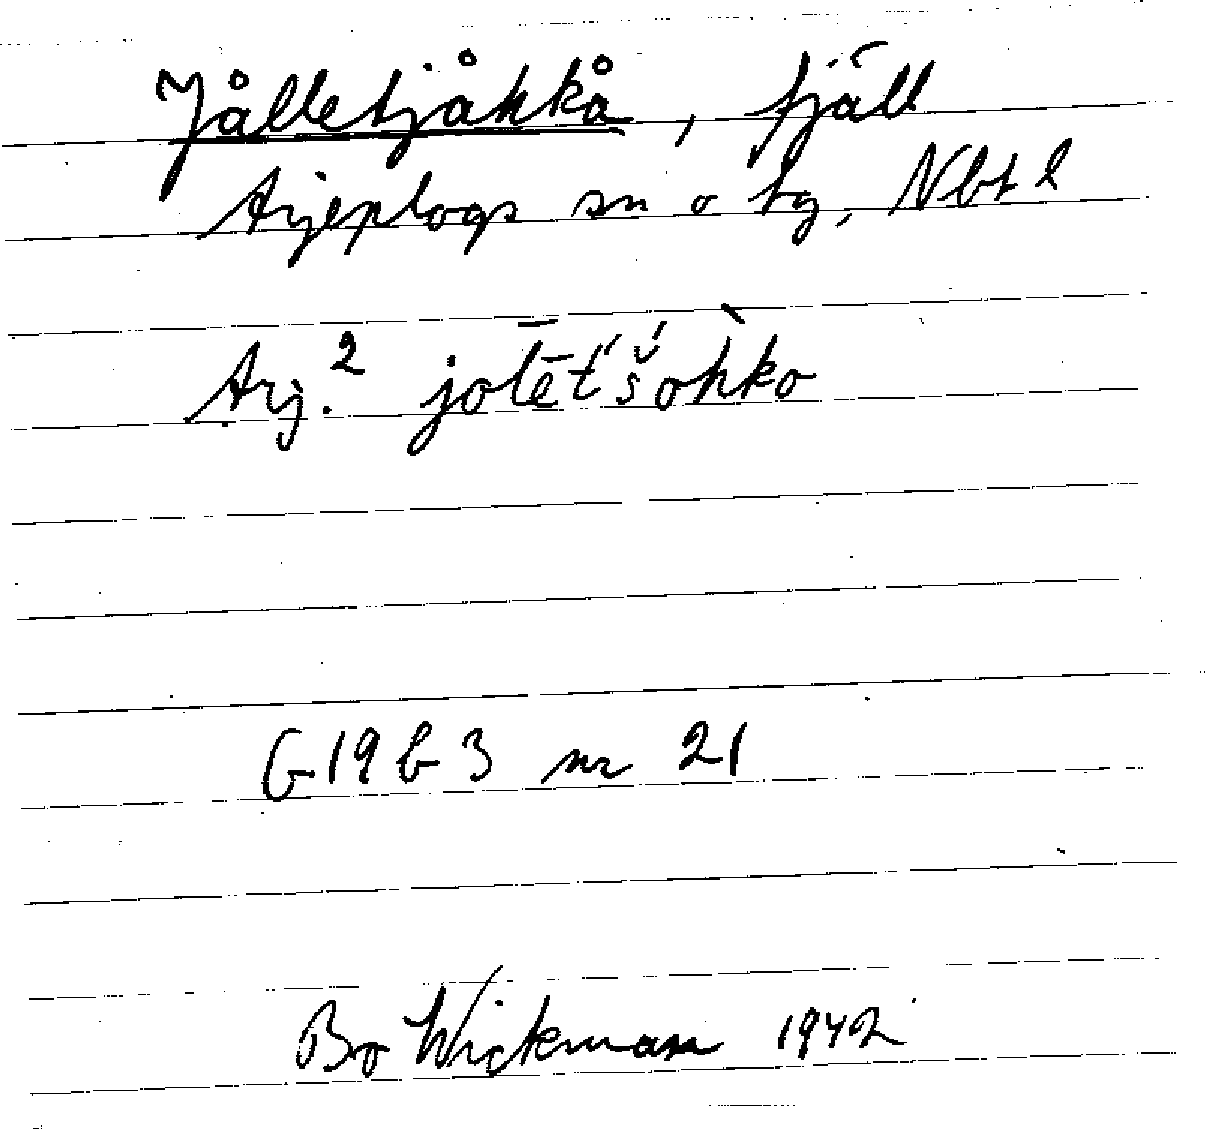 Jålletjåkkå, fjäll
Arjeplogs sn o tg, Nbt l
Arj.² jolēt́šoh̀ko
G19b3 nr 21
Bo Wickman 1942